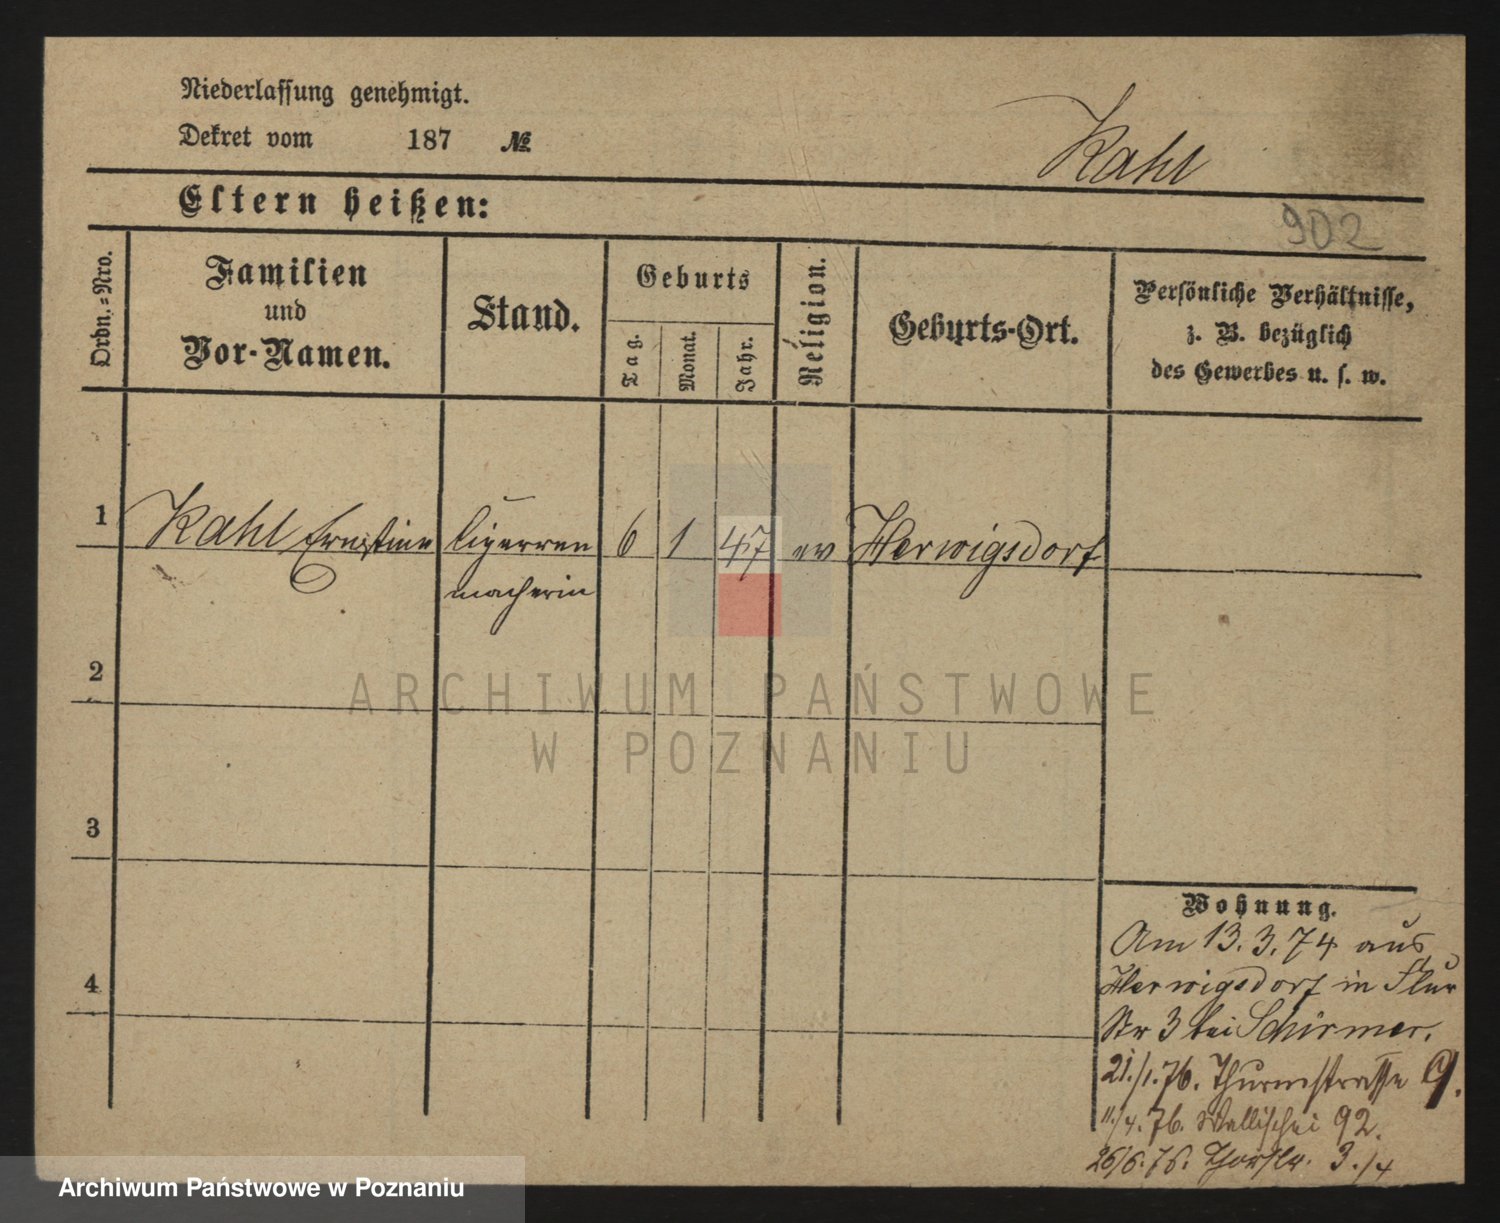 Niederlassung genehmigt.
Dekret vom 187 №
Kahl
Eltern heißen:
902
Ordn.=Nro.
Familien
und
Vor-Namen.
Stand.
Geburts
Tag.
Monat.
Jahr.
Religion.
Geburts-Ort.
Persönliche Verhältnisse,
z. B. bezüglich
des Gewerbes u. s. w.
1 Kahl Ernstine Cigarren 6 1 47 ev Herwigsdorf
macherin
2
ARCHIWUM PAŃSTWOWE
W POZNANIU
3
4
Wohnung.
Am 13. 3. 74 aus
Herwigsdorf in Flur
Str 3 bei Schirmer.
21./1. 76. Thurmstrasse 9.
11./4. 76. Wallischei 92.
26/6. 76. 3./4
Archiwum Państwowe w Poznaniu